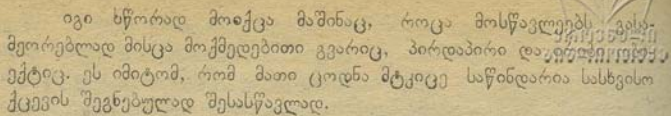 იგი სწორად მოიქცა მაშინაც, როცა მოსწავლეებს გასა-
მეორებლად მისცა მოქმედებითი გვარიც, პირდაპირი და
ექტიც. ეს იმიტომ, რომ მათი ცოდნა მტკიცე საწინდარია სასხვისო
ქცევის შეგნებულად შესასწავლად.